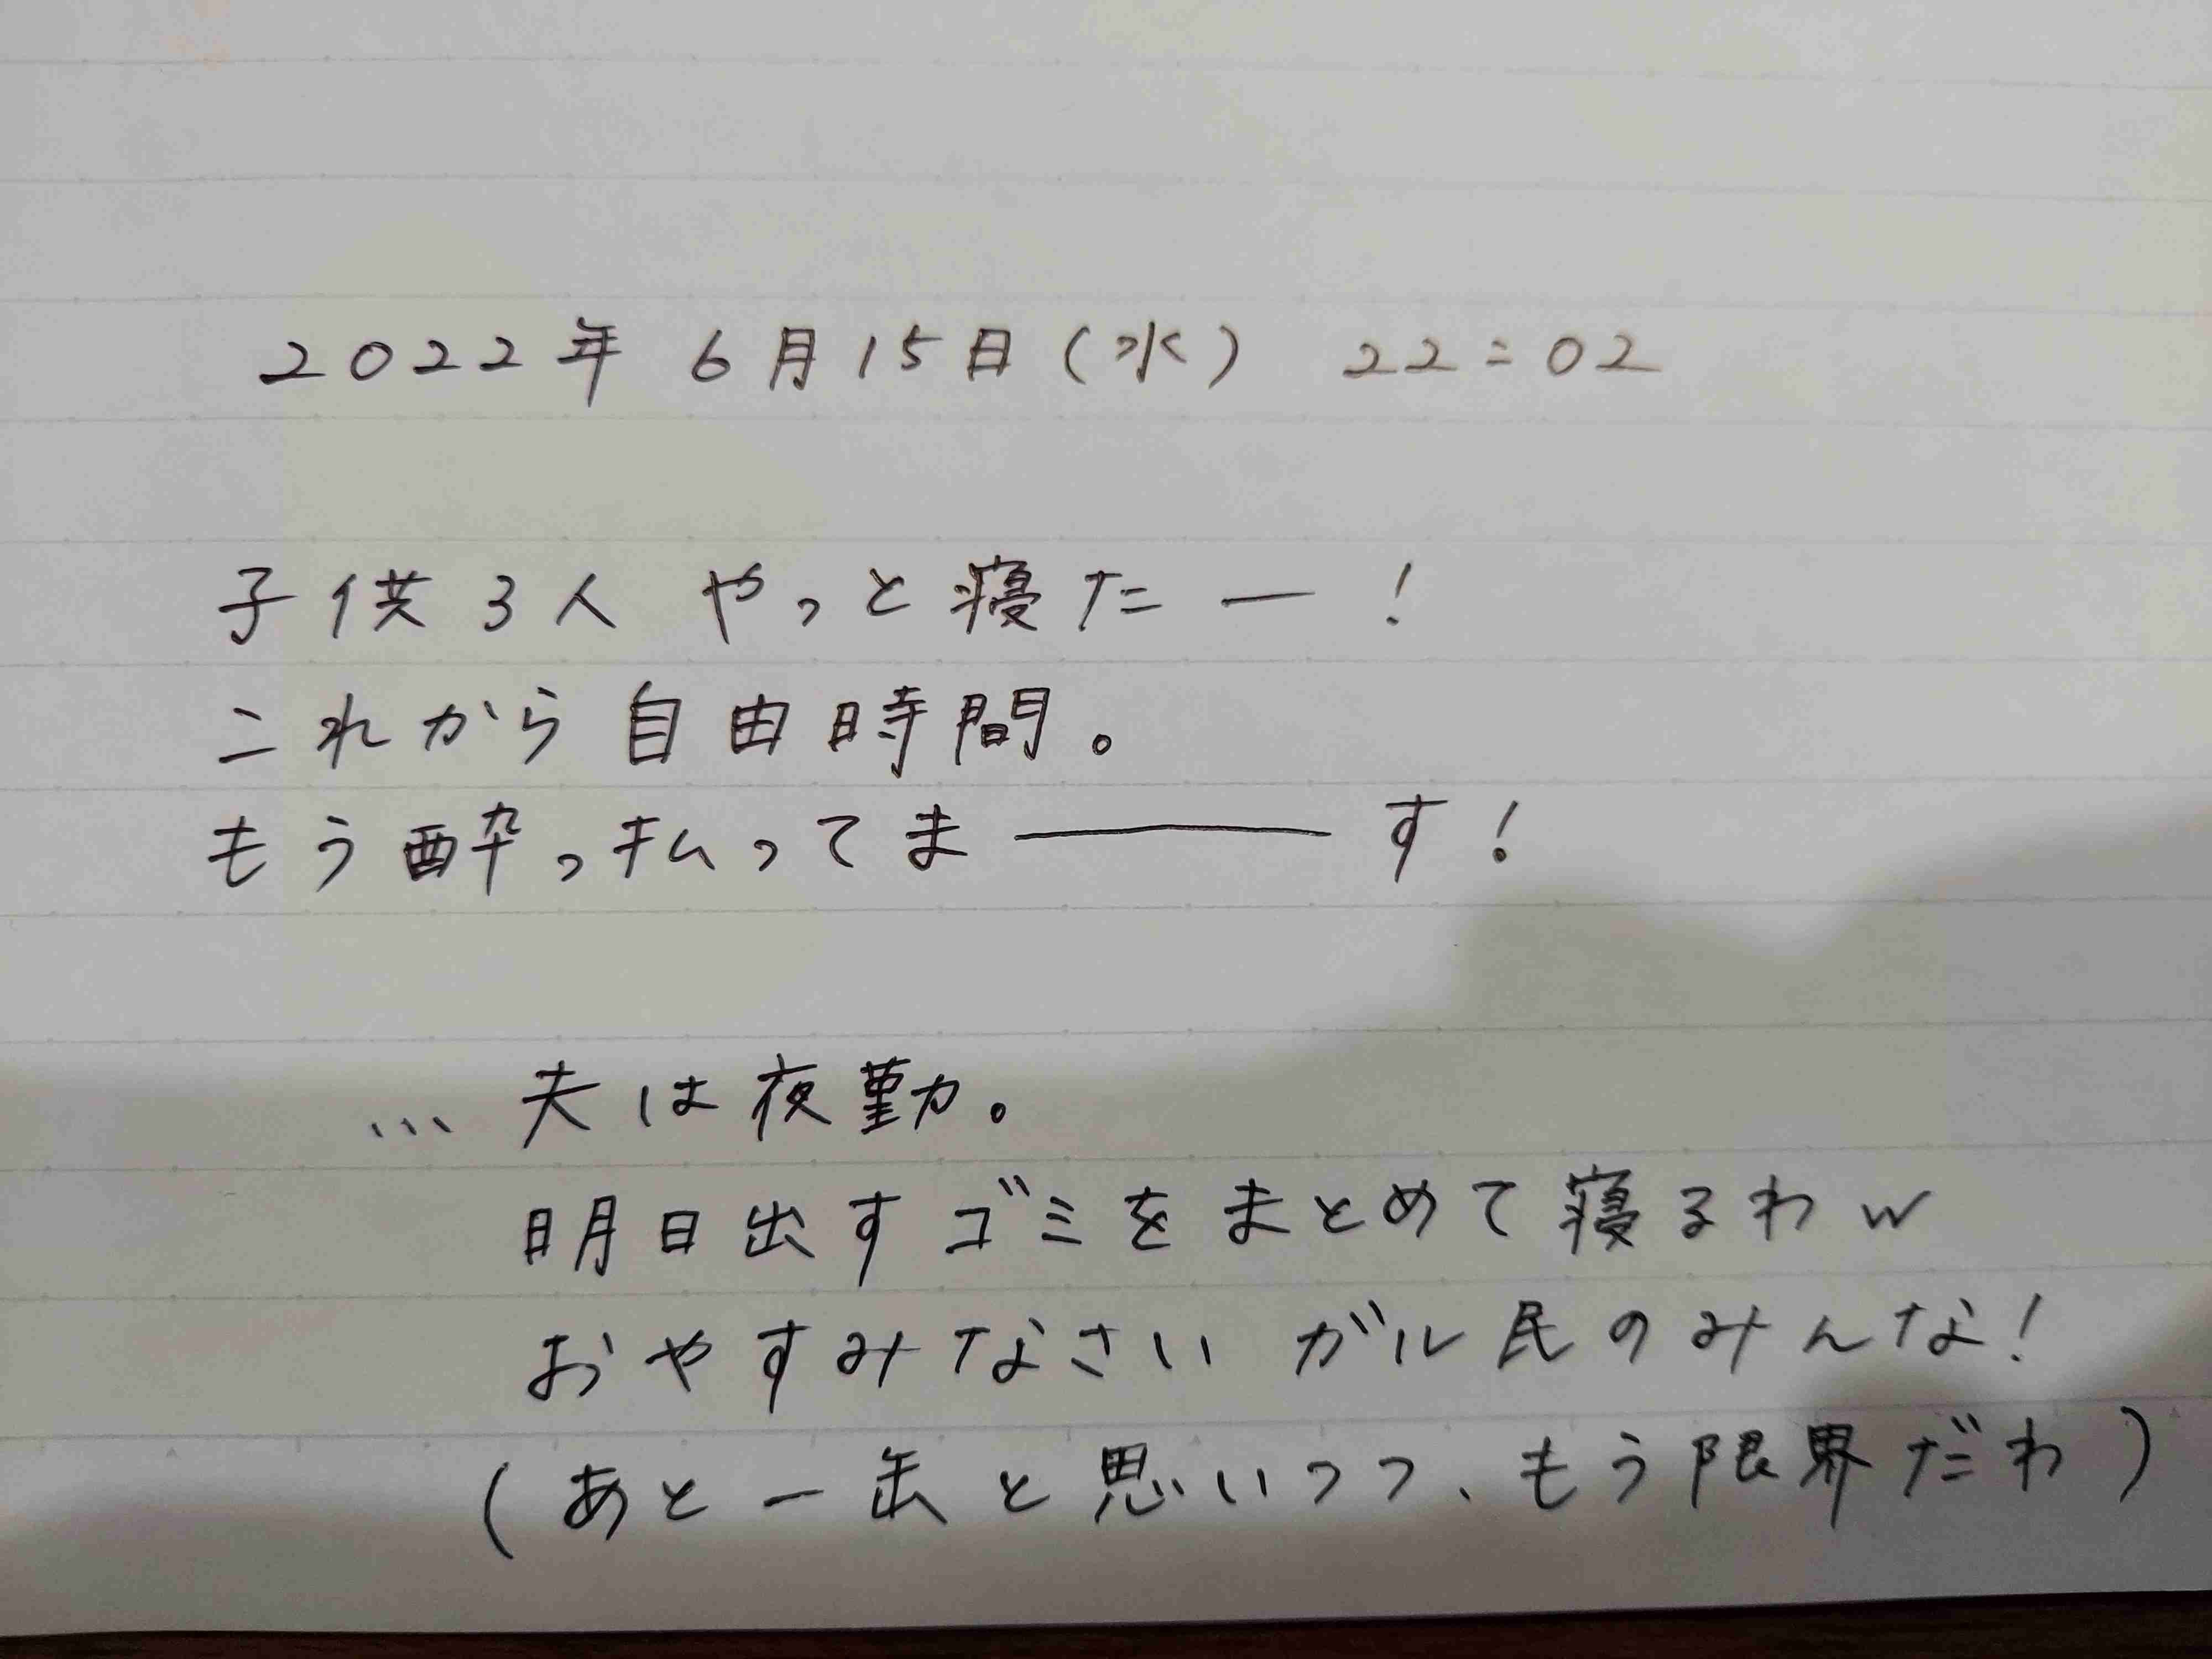 2022年 6月15日(水) 22:02
子供3人 やっと寝たー!
これから自由時間。
もう酔っ払ってまーーーす!
…夫は夜勤。
明日出すゴミをまとめて寝るわw
おやすみなさい ガル民のみんな!
(あと一缶と思いつつ、もう限界だわ)